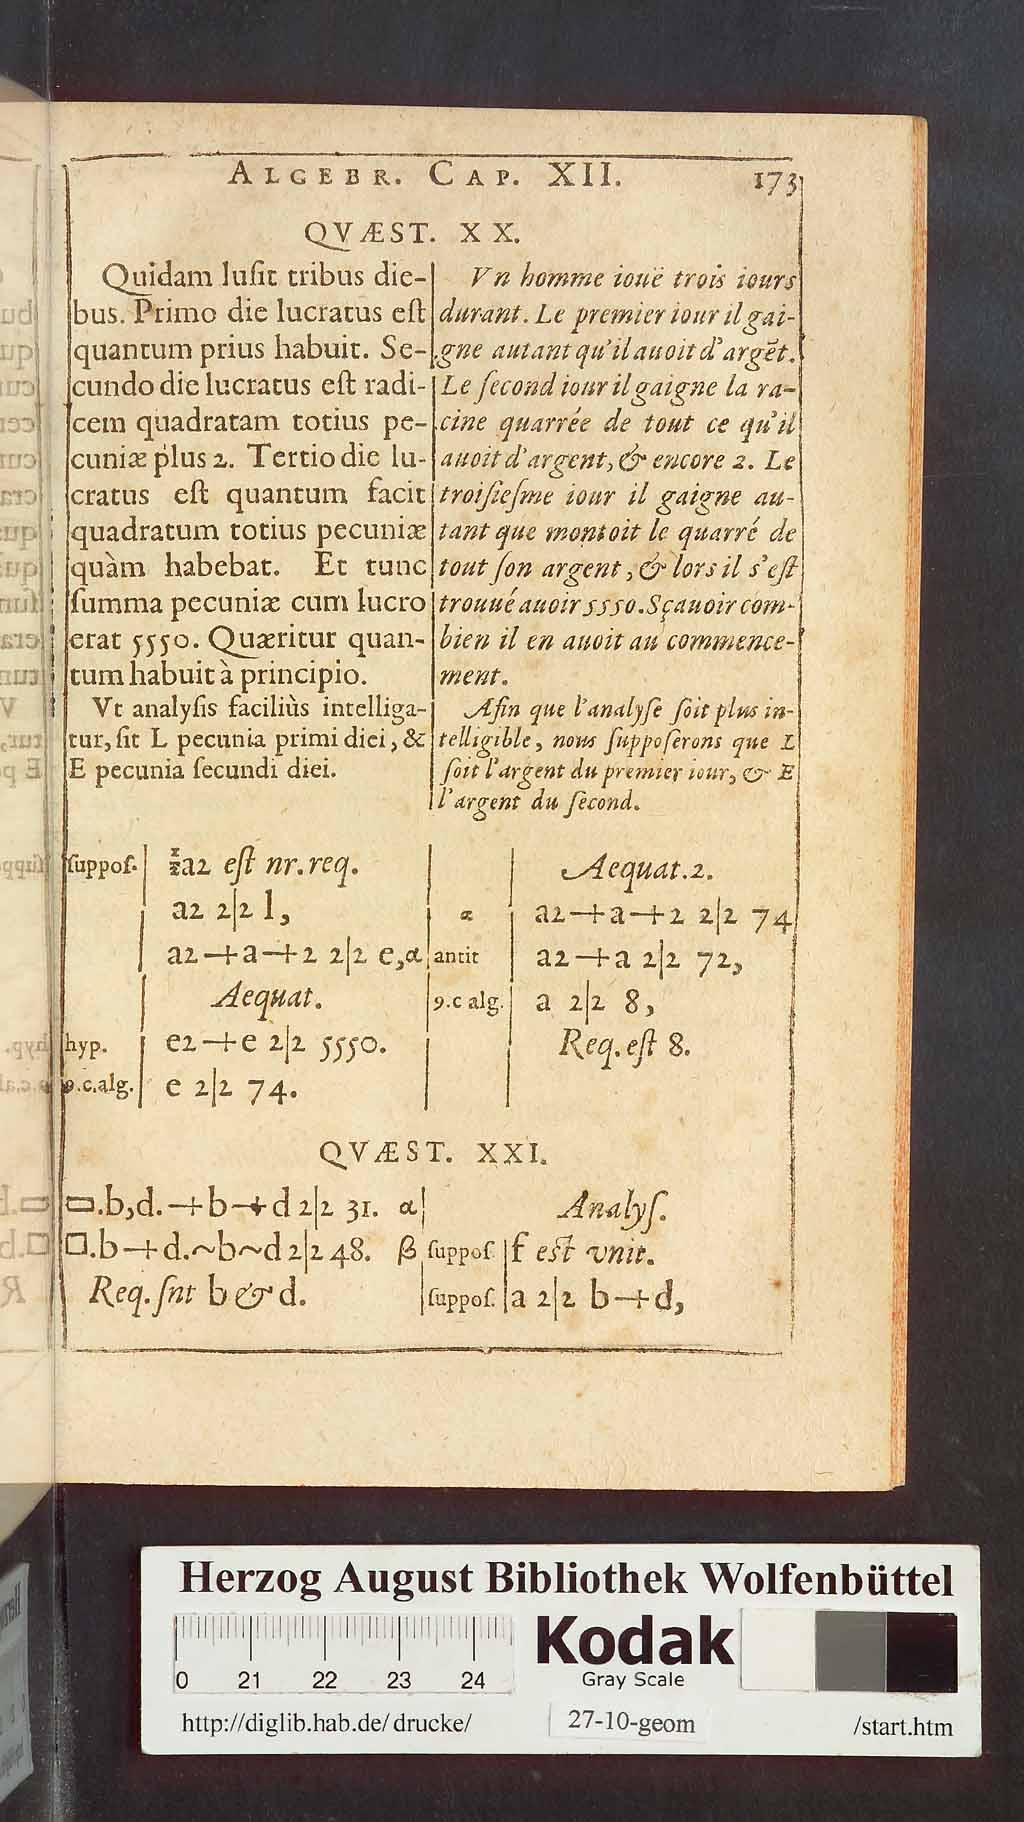 ALGEBR. CAP. XII. 173
QVÆST. XX.
Quidam luſit tribus die-
bus. Primo die lucratus eſt
quantum prius habuit. Se-
cundo die lucratus eſt radi-
cem quadratam totius pe-
cuniæ plus 2. Tertio die lu-
cratus eſt quantum facit
quadratum totius pecuniæ
quàm habebat. Et tunc
ſumma pecuniæ cum lucro
erat 5550. Quæritur quan-
tum habuit à principio.
Vt analyſis faciliùs intelliga-
tur, ſit L pecunia primi diei, &
E pecunia ſecundi diei.
Vn homme iouë trois iours
durant. Le premier iour il gai-
gne autant qu'il auoit d'argẽt.
Le ſecond iour il gaigne la ra-
cine quarrée de tout ce qu'il
auoit d'argent, & encore 2. Le
troiſieſme iour il gaigne au-
tant que montoit le quarré de
tout ſon argent, & lors il s'eſt
trouué auoir 5550. Sçauoir com-
bien il en auoit au commence-
ment.
Afin que l'analyſe ſoit plus in-
telligible, nous ſuppoſerons que L
ſoit l'argent du premier iour, & E
l'argent du ſecond.
ſuppoſ. a2 eſt nr. req.
a2 2|2 l,
a2+a+2 2|2 e, α
Aequat.
hyp. e2+e 2|2 5550.
9.c.alg. e 2|2 74.
Aequat. 2.
α a2+a+2 2|2 74
antit a2+a 2|2 72,
9.c alg. a 2|2 8,
Req. eſt 8.
QVÆST. XXI.
▭.b,d.+b+d 2|2 31. α
□.b+d.~b~d 2|2 48. β
Req. ſnt b & d.
Analyſ.
ſuppoſ. f eſt vnit.
ſuppoſ. a 2|2 b+d,
Herzog August Bibliothek Wolfenbüttel
0 21 22 23 24
Kodak
Gray Scale
http://diglib.hab.de/drucke/ 27-10-geom /start.htm